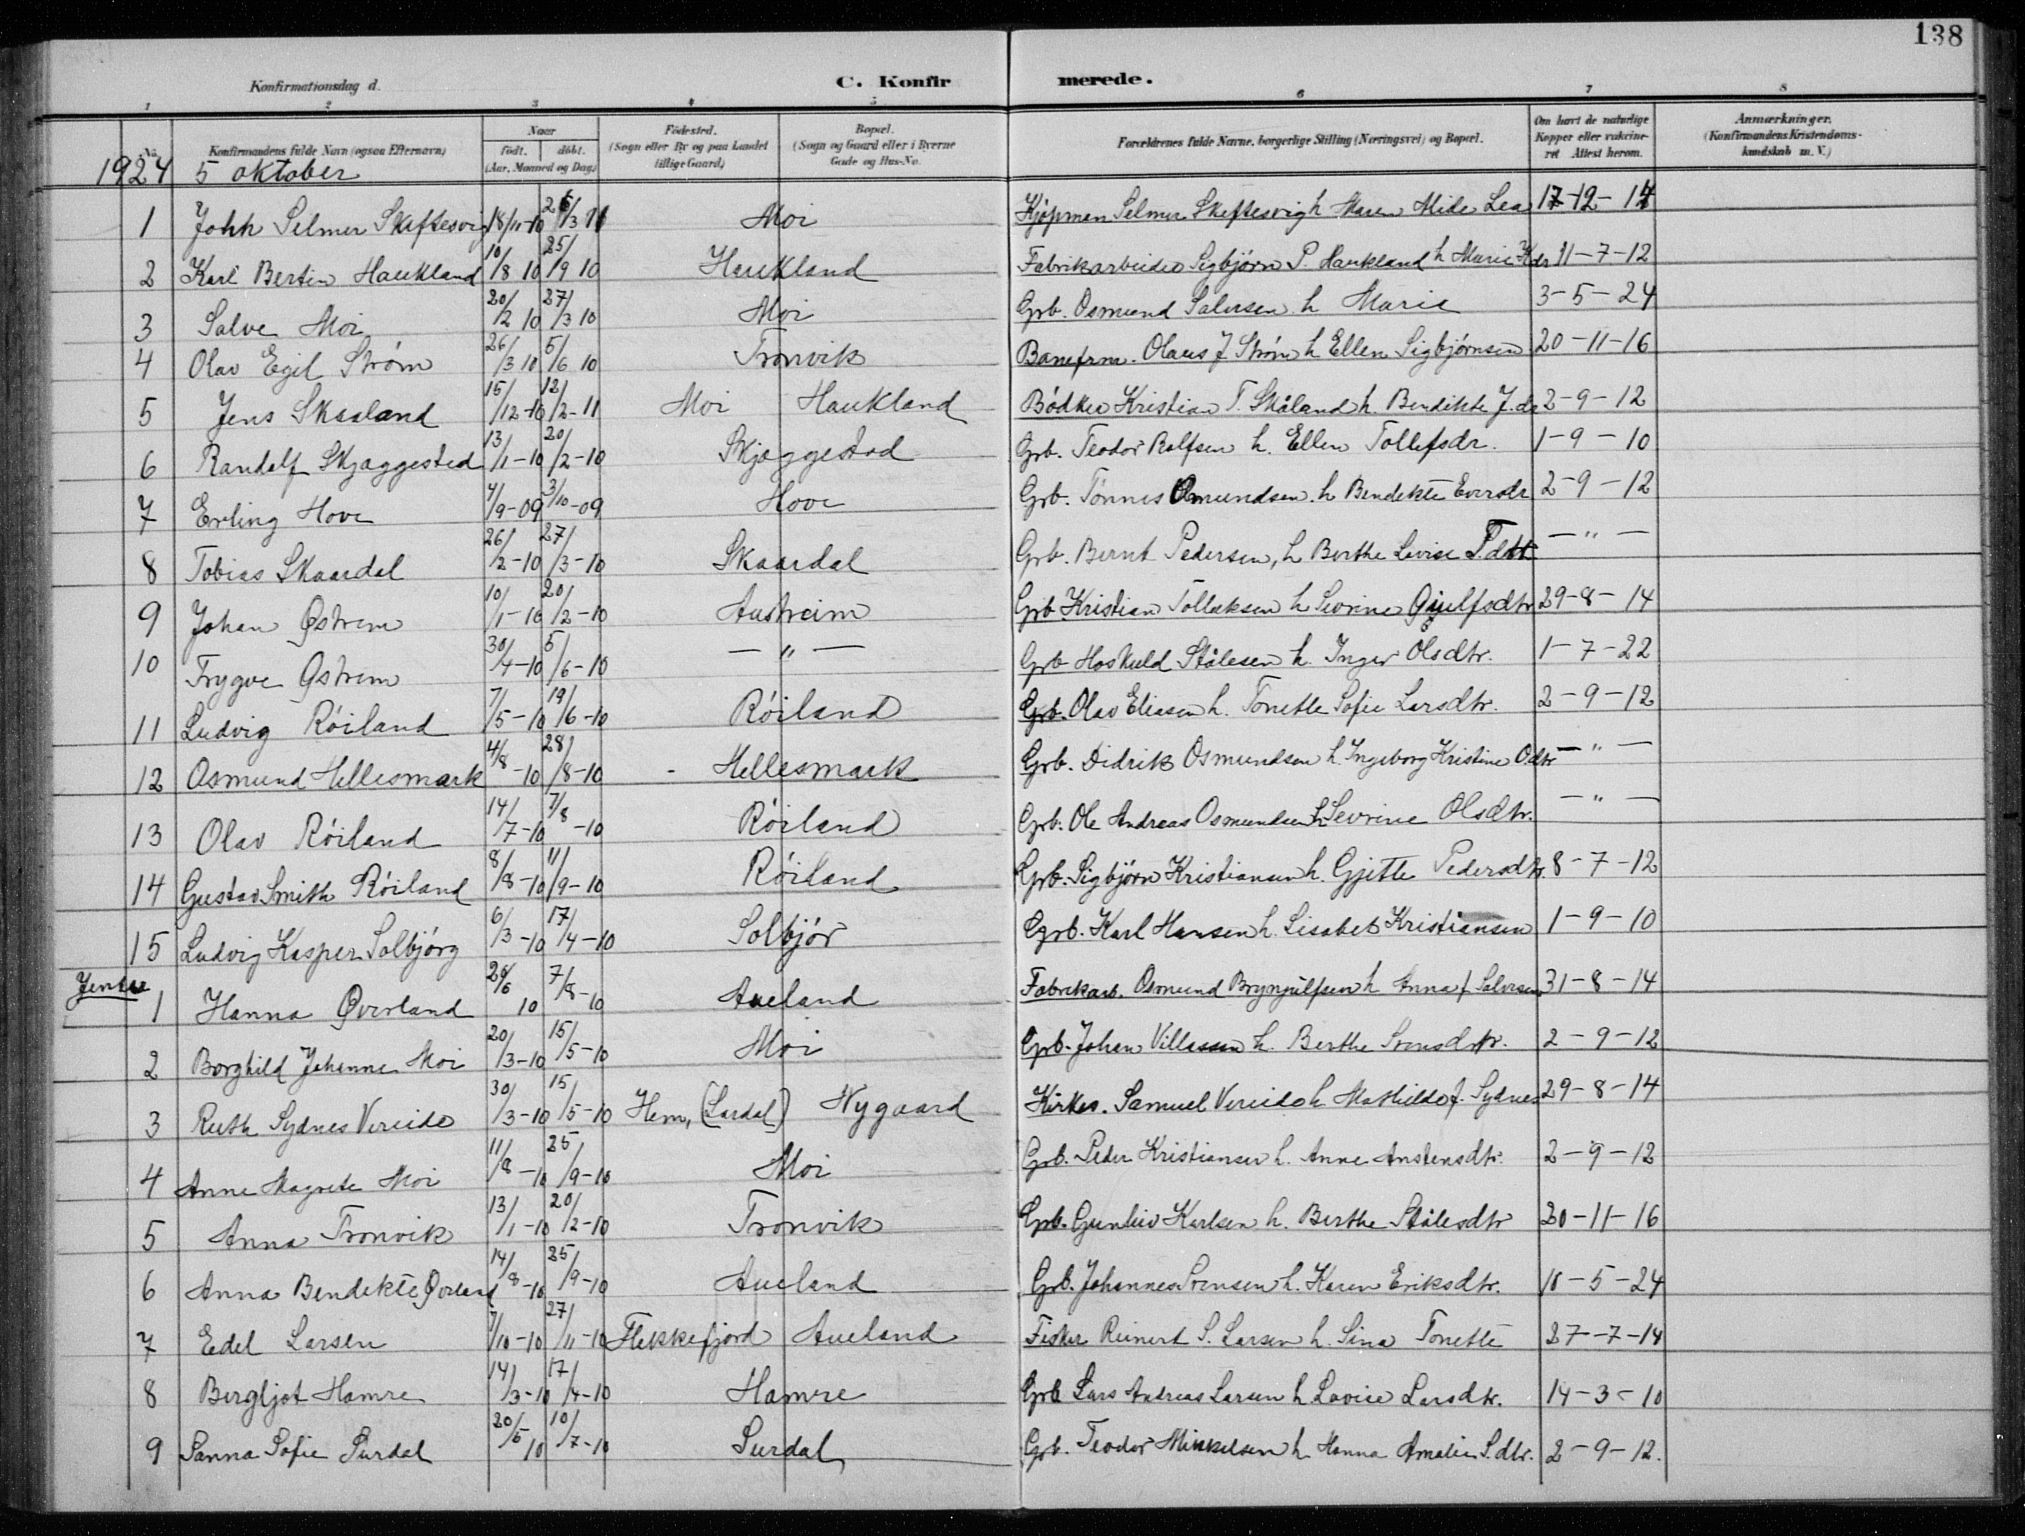 138
Konfirmationsdag d.
C. Konfirmerede.
1 2 3 4 5 6 7 8
No.
Konfirmandens fulde Navn (ogsaa Efternavn)
Naar født. døbt. (Aar, Maaned og Dag)
Fødested. (Sogn eller By og paa Landet tillige Gaard)
Bopæl. (Sogn og Gaard eller i Byerne Gade og Hus-No.
Forældrenes fulde Navne, borgerlige Stilling (Næringsvei) og Bopæl.
Om havt de naturlige Kopper eller vakcineret Attest herom.
Anmærkninger. (Konfirmandens Kristendomskundskab m. V.)
1924 5 oktober
1 John Selmer Skeftesvig 18/11-10 26/3 11 Moi Kjøpman Selmer Skeftesvig h Maren Mide Lea 17-12-14
2 Karl Bertin Haukland 10/8 10 25/9 10 Haukland Fabrikarbeider Sigbjørn P. Haukland h Marie Kdr 11-7-12
3 Salve Moi 20/2 10 27/3 10 Moi Grb. Osmund Salvesen h Marie 3-5-24
4 Olav Egil Strøm 26/3 10 5/6 10 Tronvik Banefrm. Olaus J Strøm h Ellen Sigbjørnsen 20-11-16
5 Jens Skaaland 15/12-10 12/2-11 Moi Haukland Bødker Kristian T. Skåland h. Bendikte J.dr 2-9-12
6 Randolf Skjæggestad 13/1-10 20/2-10 Skjæggestad Grb. Teodor Rolfsen h. Ellen Tollefsdr. 1-9-10
7 Erling Hove 4/9-09 3/10-09 Hove Grb. Tønnes Omundsen h Bendekte Eversdr 2-9-12
8 Tobias Skaardal 26/2-10 27/3-10 Skaardal Grb. Bernt Pedersen, h Berthe Lovise T.dtr — " —
9 Johan Østrem 10/1-10 20/2-10 Austreim Grb Kristian Tollaksen h Sevrine Gjulfsdtr 29-8-14
10 Trygve Østrem 30/4-10 5/6-10 — " — Grb Hoskuld Stålesen h. Inger Olsdtr. 1-7-22
11 Ludvig Røiland 7/5-10 19/6-10 Røiland Grb. Olav Eliasen h. Tonette Sofie Larsdtr. 2-9-12
12 Osmund Hellesmark 4/8-10 28/8-10 - Hellesmark Grb. Didrik Osmundsen h. Ingeborg Kristine Odtr — " —
13 Olav Røiland 14/7-10 7/8-10 Røiland Grb. Ole Andreas Osmundsen h Sevrine Olsdtr. — " —
14 Gustav Smith Røiland 8/8-10 11/9-10 Røiland Grb. Sigbjørn Kristiansen h. Gjitte Pedersdtr. 8-7-12
15 Ludvig Kasper Solbjørg 6/3-10 17/4-10 Solbjør Grb. Karl Hansen h. Lisabet Kristiansen 1-9-10
Jenter
1 Hanna Øverland 26/6 10 7/8-10 Aueland Fabrikarb. Osmund Brynjulfsen h Anna f Salvesen 31-8-14
2 Borghild Johanne Moi 20/3-10 15/5-10 Moi Grb. Johan Villassen h. Berthe Svensdtr. 2-9-12
3 Ruth Sydnes Vereide 30/3-10 15/5-10 Hem, (Lardal) Nygaard Kirkes. Samuel Vereide h Mathilde f. Sydnes 29-8-14
4 Anne Magrete Moi 11/8-10 25/9-10 Moi Grb. Peder Kristiansen h. Anne Anstensdtr. 2-9-12
5 Anna Tronvik 13/1-10 20/2-10 Tronvik Grb. Gunleiv Karlsen h. Berthe Stålesdtr 20-11-16
6 Anna Bendekte Øverland 14/8-10 25/9-10 Aueland Grb. Johannes Svensen h. Karen Eriksdtr. 10-5-24
7 Edel Larsen 7/10-10 27/11-10 Flekkefjord Aueland Fisker Reinert S. Larsen h. Sina Tonette 27-7-14
8 Bergljot Hamre 14/3-10 17/4-10 Hamre Grb Lars Andreas Larsen h Lovise Larsdtr. 14-3-10
9 Sanna Sofie Surdal 20/5 10 10/7-10 Surdal Grb. Teodor Mikkelsen h Hanna Amalie S.dtr. 2-9-12.